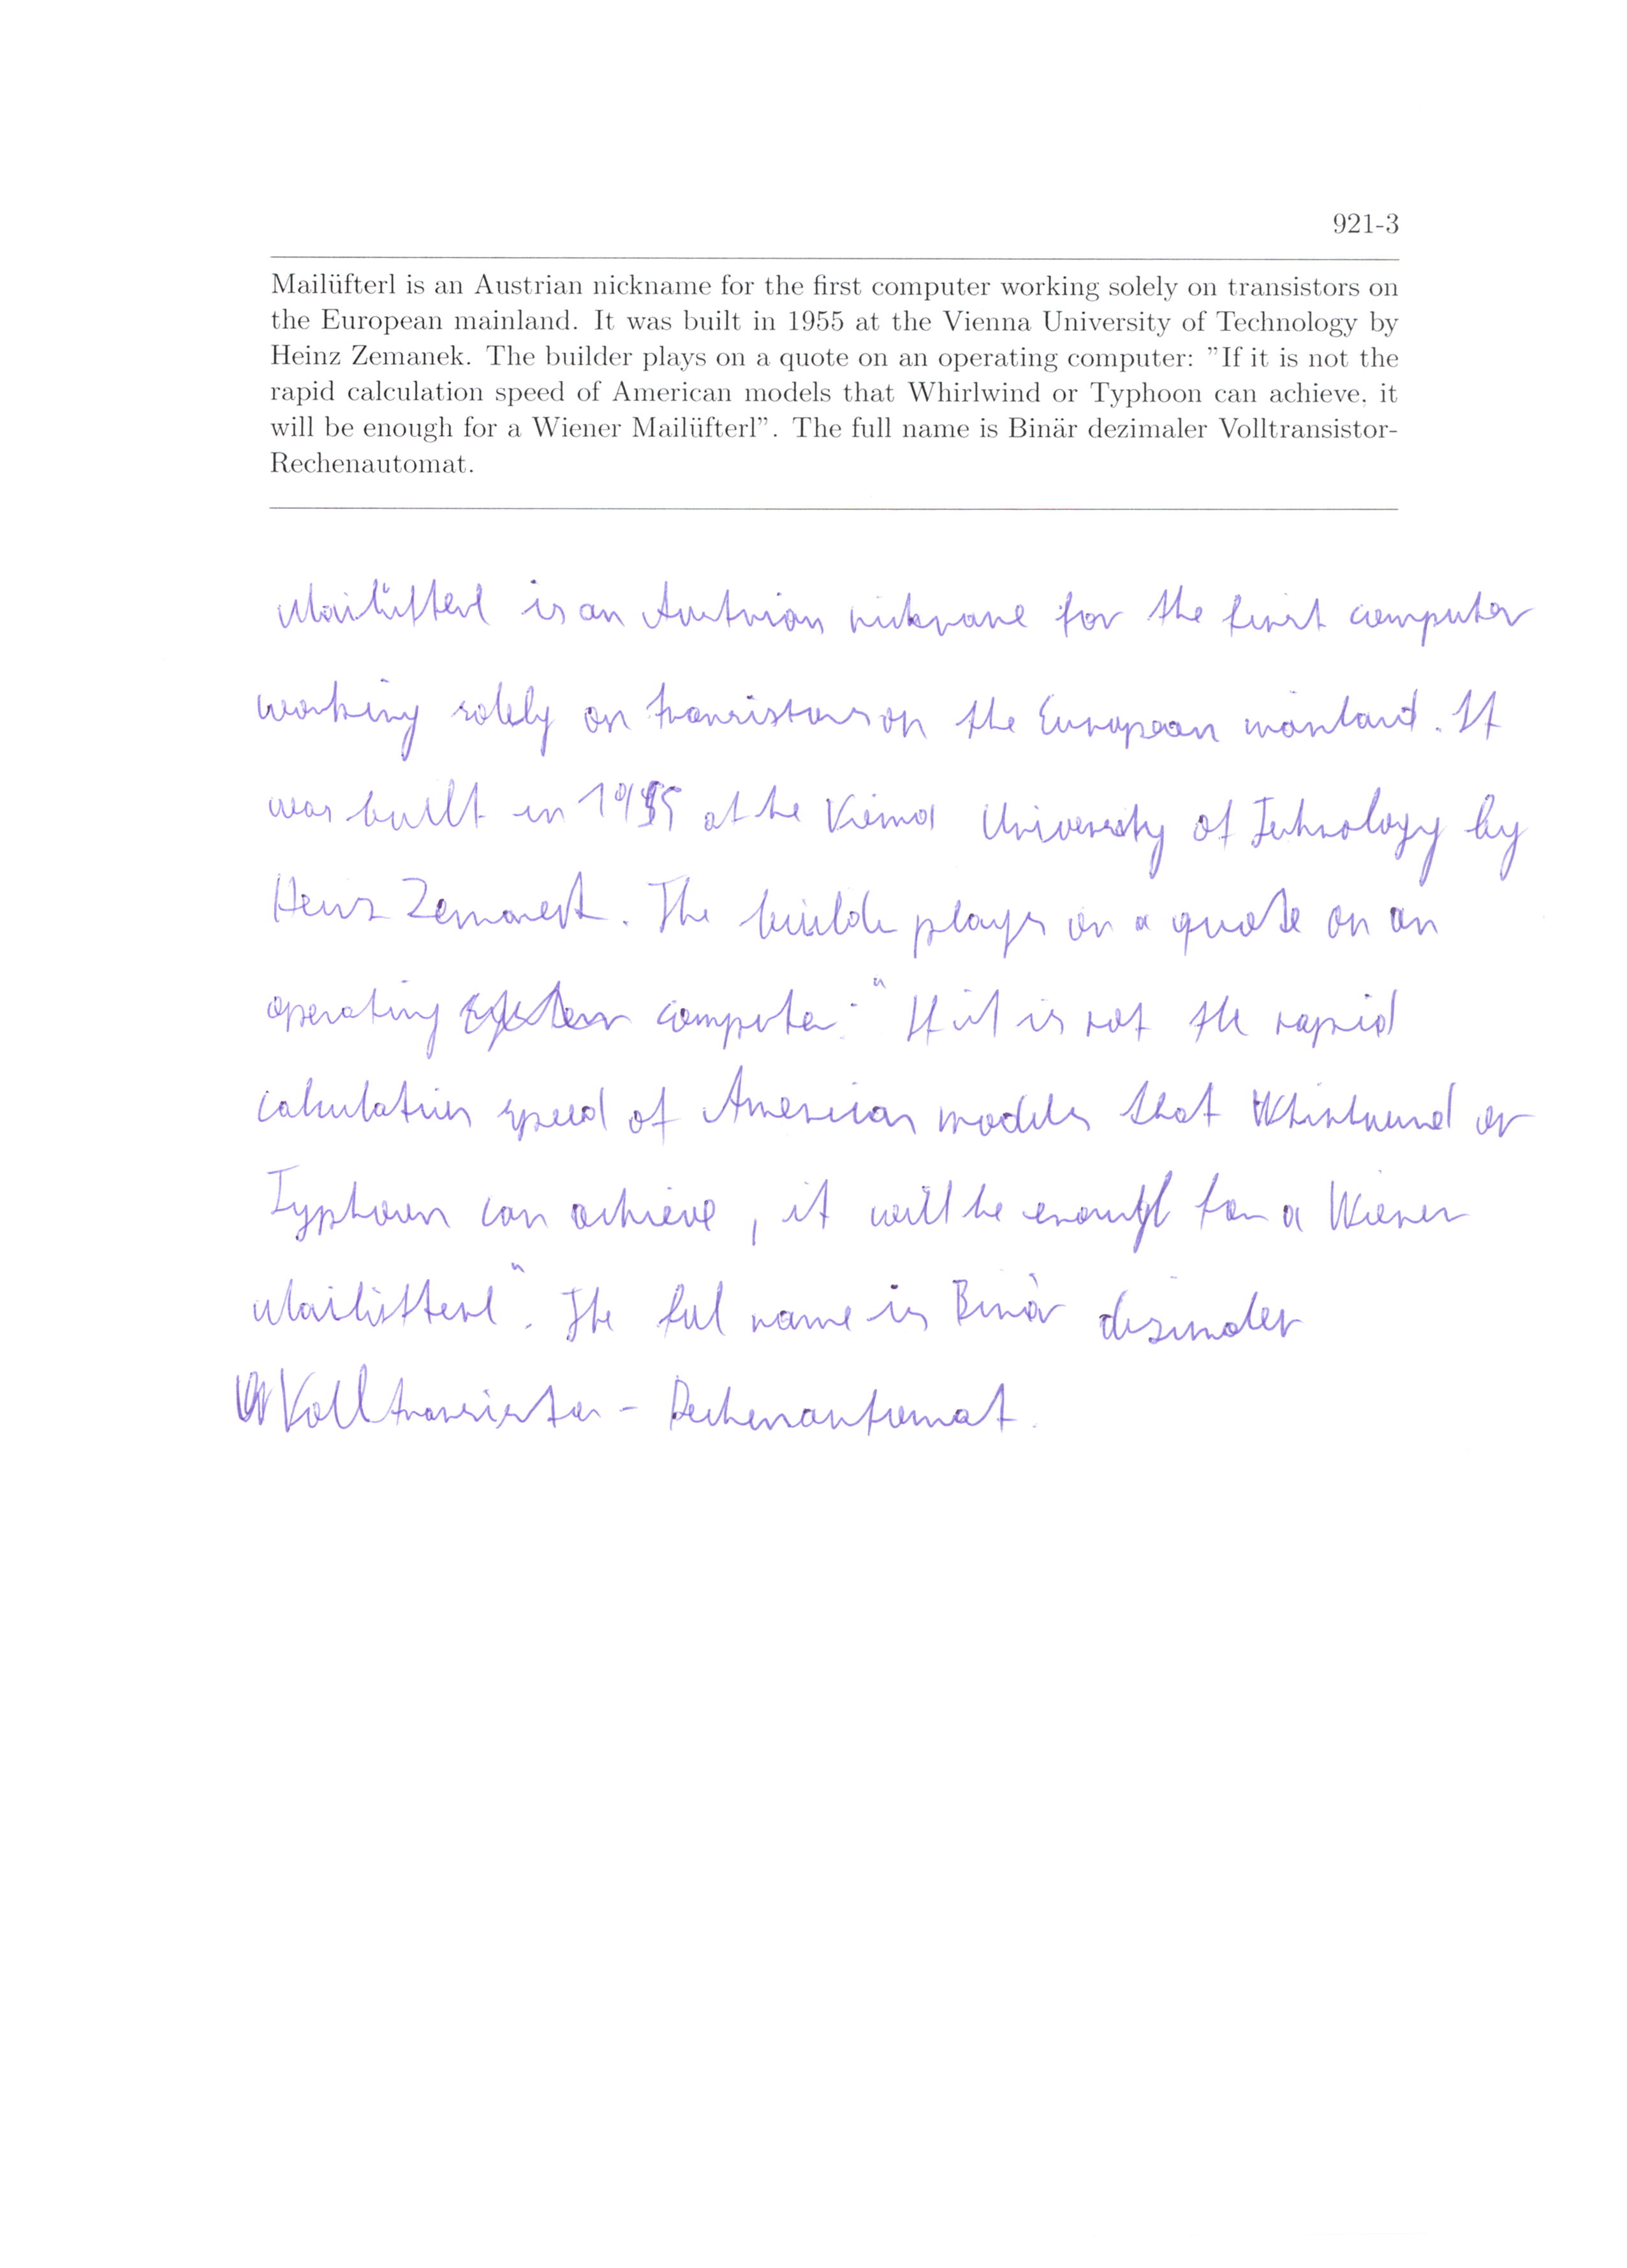 921-3
Mailüfterl is an Austrian nickname for the first computer working solely on transistors on
the European mainland. It was built in 1955 at the Vienna University of Technology by
Heinz Zemanek. The builder plays on a quote on an operating computer: ”If it is not the
rapid calculation speed of American models that Whirlwind or Typhoon can achieve, it
will be enough for a Wiener Mailüfterl”. The full name is Binär dezimaler Volltransistor-
Rechenautomat.
Mailüfterl is an Austrian nickname for the first computer
working solely on transistors on the European mainland. It
was built in 1955 at the Vienna University of Technology by
Heinz Zemanek. The builde plays on a quote on an
operating computer: "If it is not the rapid
calculation speed of American models that Whirlwind or
Typhoon can achieve, it will be enough for a Wiener
Mailüfterl". The ful name is Binär dezimaler
Volltransistor-Rechenautomat.